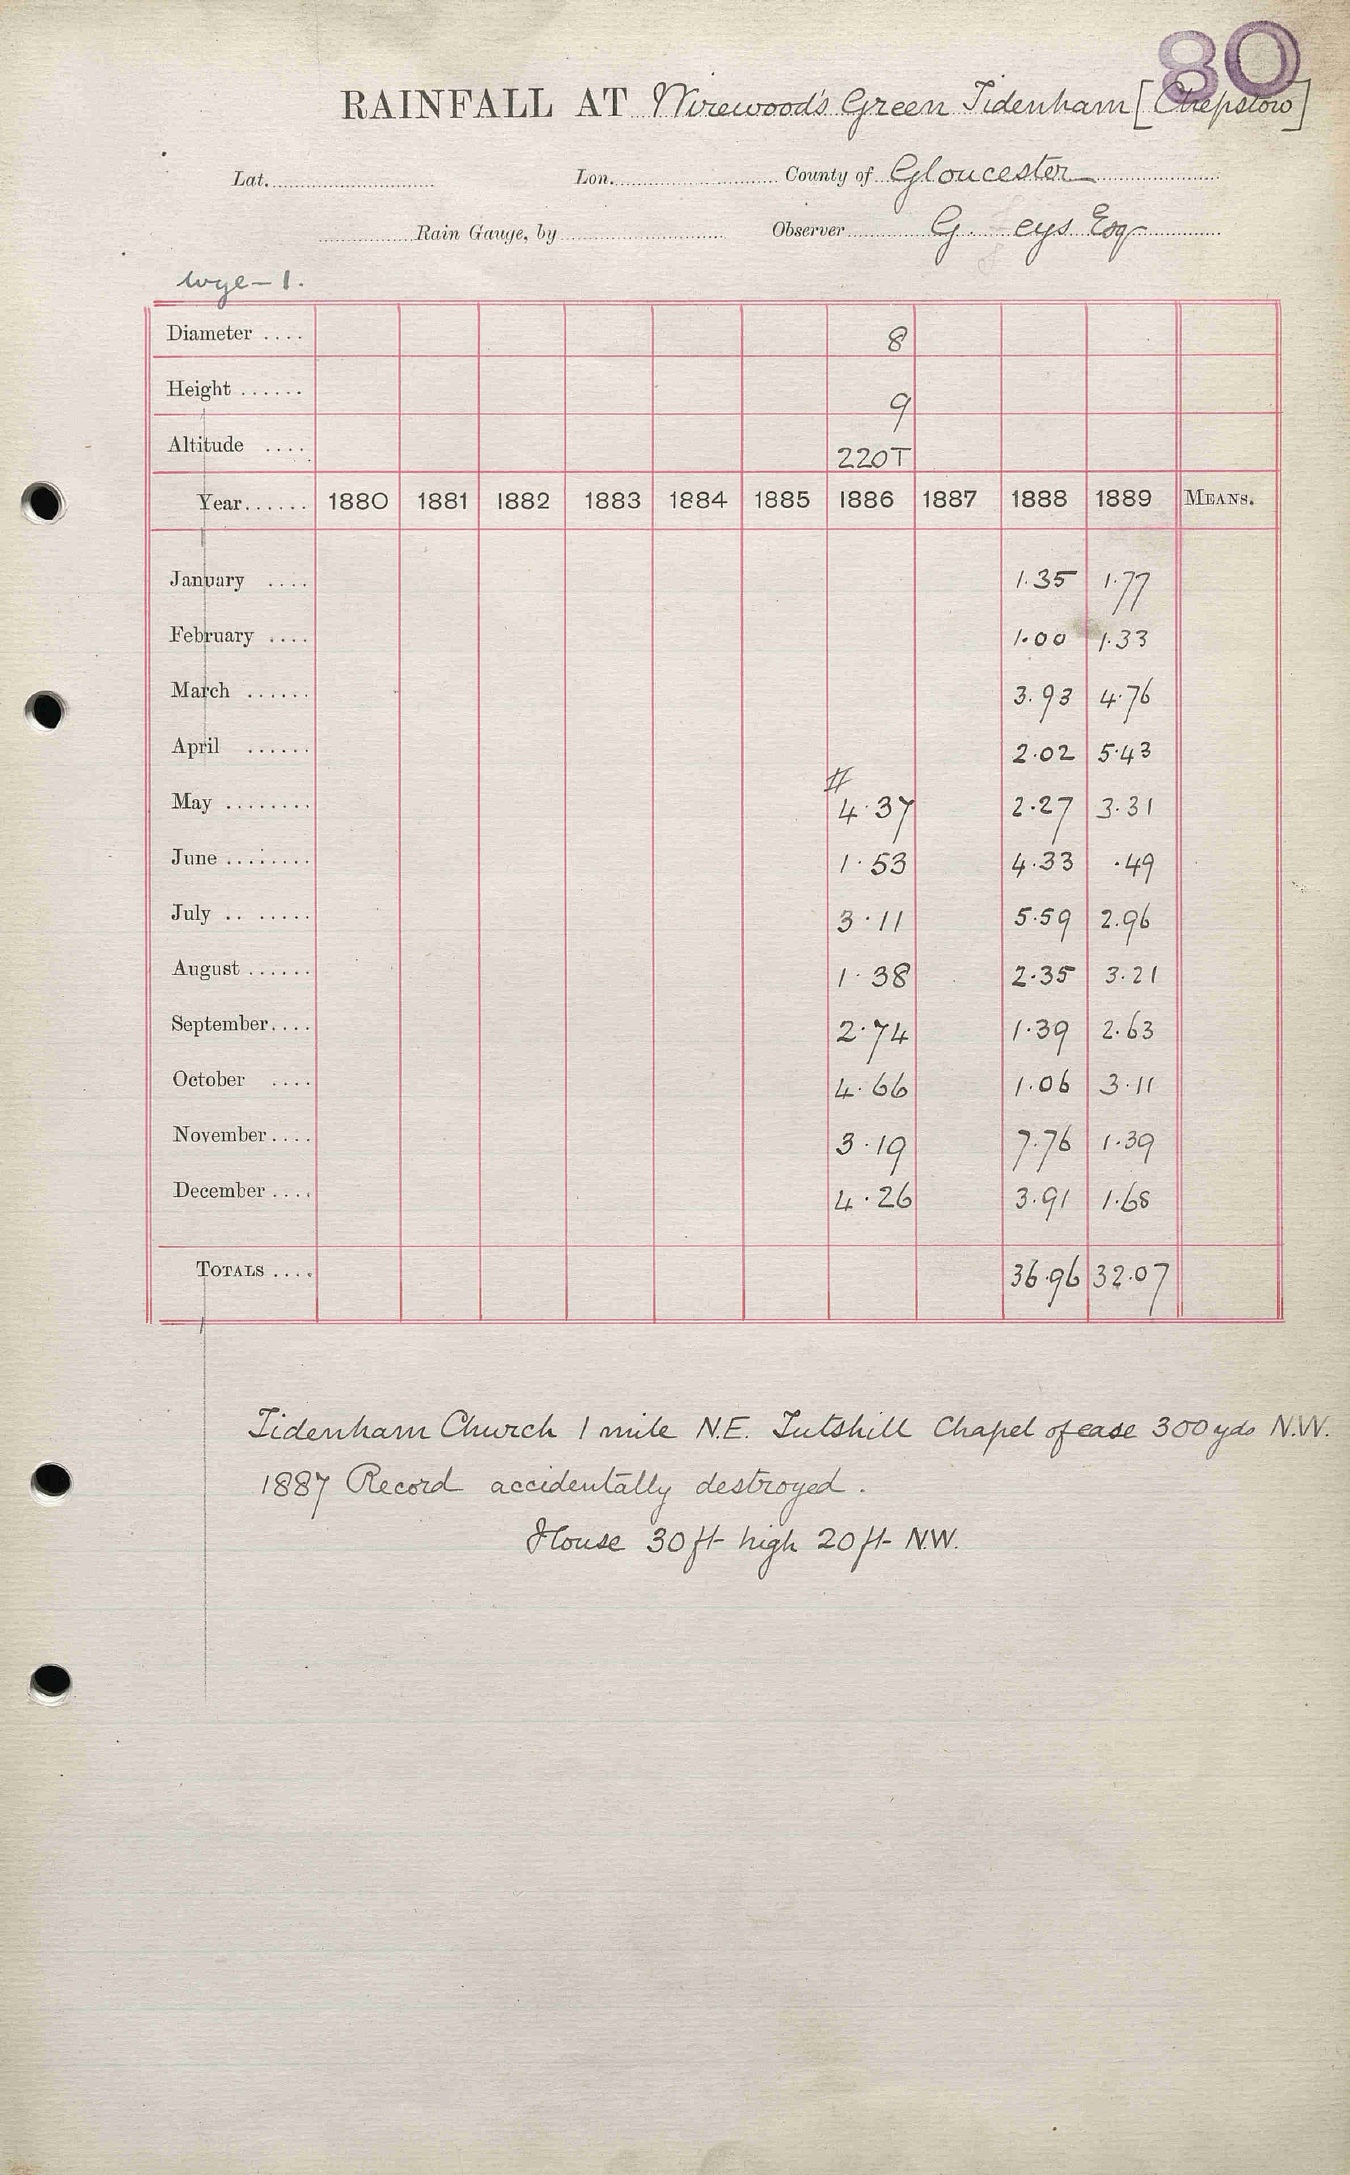 80
RAINFALL AT Wirewood's Green Tidenham [Chepstow]
Lat. Lon. County of Gloucester
Rain Gauge, by Observer G. eys Esq
Wye-1.
Diameter .... 8
Height ...... 9
Altitude .... 220T
Year...... 1880 1881 1882 1883 1884 1885 1886 1887 1888 1889 MEANS.
January .... 1.35 1.77
February .... 1.00 1.33
March ...... 3.93 4.76
April ...... 2.02 5.43
#
May ........ 4.37 2.27 3.31
June ........ 1.53 4.33 .49
July .. ..... 3.11 5.59 2.96
August ...... 1.38 2.35 3.21
September.... 2.74 1.39 2.63
October .... 4.66 1.06 3.11
November.... 3.19 7.76 1.39
December .... 4.26 3.91 1.68
TOTALS .... 36.96 32.07
Tidenham Church 1 mile N.E. Tutshill Chapel of ease 300 yds N.W.
1887 Record accidentally destroyed.
House 30 ft high 20 ft N.W.